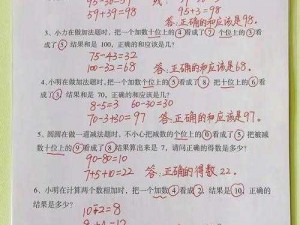 59+39=98 95+3=98
答:正确的和应该是98.
3、小力在做加法题时,把一个加数十位上的④看成了⑦,个位上的③看
成了⑤,结果和是100,正确的和应该是几?
75-43=32
100-32=68 答:正确的和应该是68.
4.小明在做加法题时,把一个数个位上的⑤看成了⑧,把十位上的⑥看
成了③结果和是70,正确的和应该是几?
8-5=3 60-30=30
70-3+30=97 答:正确的和应该是97.
5、圆圆在做一道减法题时,不小心把减数的个位上的⑥看成了⑤,把被减
数十位上的⑨看成了⑧结果算出来是7,请问正确的得数是多少?
90-80=10
答:正确的得数22.
6、小明在计算两个数相加时,把一个加数④看成②,结果是⑩,正确的
结果是多少?
10-2=8